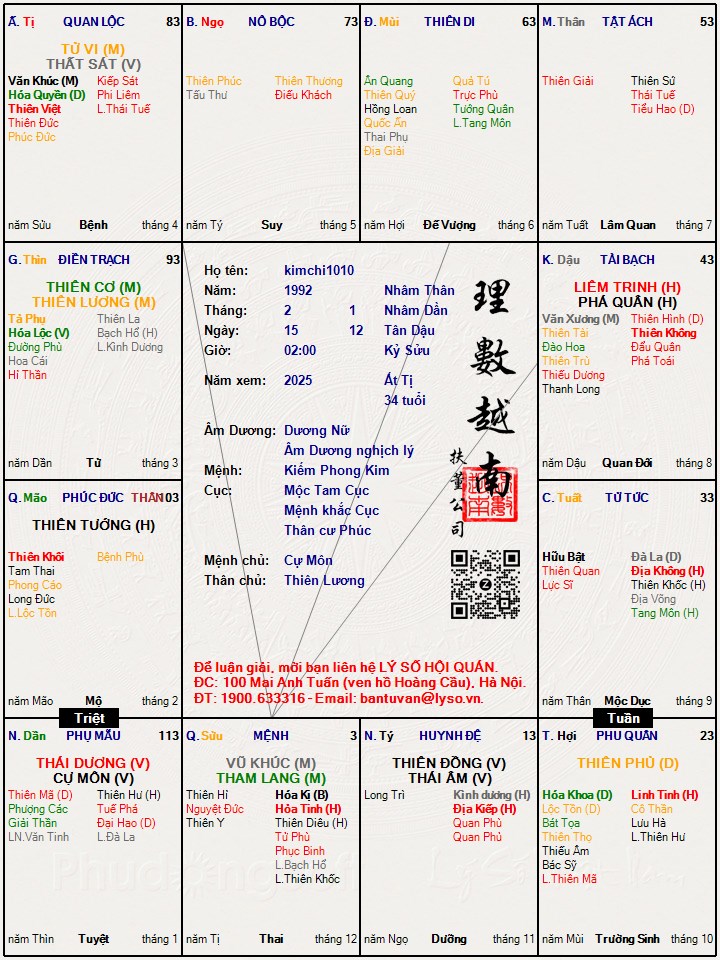 Ã. Tị QUAN LỘC 83
TỬ VI (M)
THẤT SÁT (V)
Văn Khúc (M) Kiếp Sát
Hóa Quyền (D) Phi Liêm
Thiên Việt L.Thái Tuế
Thiên Đức
Phúc Đức
năm Sửu Bệnh tháng 4
B. Ngọ NÔ BỘC 73
Thiên Phúc Thiên Thương
Tấu Thư Điếu Khách
năm Tý Suy tháng 5
Đ. Mùi THIÊN DI 63
Ân Quang Quả Tú
Thiên Quý Trực Phù
Hồng Loan Tướng Quân
Quốc Ấn L.Tang Môn
Thai Phụ
Địa Giải
năm Hợi Đế Vượng tháng 6
M. Thân TẬT ÁCH 53
Thiên Giải Thiên Sứ
Thái Tuế
Tiểu Hao (D)
năm Tuất Lâm Quan tháng 7
G. Thìn ĐIỀN TRẠCH 93
THIÊN CƠ (M)
THIÊN LƯƠNG (M)
Tả Phụ Thiên La
Hóa Lộc (V) Bạch Hổ (H)
Đường Phù L.Kình Dương
Hoa Cái
Hỉ Thần
năm Dần Tử tháng 3
Họ tên: kimchi1010
Năm: 1992 Nhâm Thân
Tháng: 2 1 Nhâm Dần
Ngày: 15 12 Tân Dậu
Giờ: 02:00 Kỷ Sửu
Năm xem: 2025 Ất Tị
34 tuổi
Âm Dương: Dương Nữ
Âm Dương nghịch lý
Mệnh: Kiếm Phong Kim
Cục: Mộc Tam Cục
Mệnh khắc Cục
Thân cư Phúc
Mệnh chủ: Cự Môn
Thân chủ: Thiên Lương
理數越南
扶董公司
Z
Để luận giải, mời bạn liên hệ LÝ SỐ HỘI QUÁN.
ĐC: 100 Mai Anh Tuấn (ven hồ Hoàng Cầu), Hà Nội.
ĐT: 1900.633316 - Email: bantuvan@lyso.vn.
K. Dậu TÀI BẠCH 43
LIÊM TRINH (H)
PHÁ QUÂN (H)
Văn Xương (M) Thiên Hình (D)
Thiên Tài Thiên Không
Đào Hoa Đẩu Quân
Thiên Trù Phá Toái
Thiếu Dương
Thanh Long
năm Dậu Quan Đới tháng 8
Q. Mão PHÚC ĐỨC THÂN 103
THIÊN TƯỚNG (H)
Thiên Khôi Bệnh Phù
Tam Thai
Phong Cáo
Long Đức
L.Lộc Tồn
năm Mão Mộ tháng 2
C. Tuất TỬ TỨC 33
Hữu Bật Đà La (D)
Thiên Quan Địa Không (H)
Lực Sĩ Thiên Khốc (H)
Địa Võng
Tang Môn (H)
năm Thân Mộc Dục tháng 9
Triệt
Tuần
N. Dần PHỤ MẪU 113
THÁI DƯƠNG (V)
CỰ MÔN (V)
Thiên Mã (D) Thiên Hư (H)
Phượng Các Tuế Phá
Giải Thần Đại Hao (D)
LN.Văn Tinh L.Đà La
năm Thìn Tuyệt tháng 1
Q. Sửu MỆNH 3
VŨ KHÚC (M)
THAM LANG (M)
Thiên Hỉ Hóa Kị (B)
Nguyệt Đức Hỏa Tinh (H)
Thiên Y Thiên Diêu (H)
Tử Phù
Phục Binh
L.Bạch Hổ
L.Thiên Khốc
năm Tị Thai tháng 12
N. Tý HUYNH ĐỆ 13
THIÊN ĐỒNG (V)
THÁI ÂM (V)
Long Trì Kình dương (H)
Địa Kiếp (H)
Quan Phù
Quan Phủ
năm Ngọ Dưỡng tháng 11
T. Hợi PHU QUÂN 23
THIÊN PHỦ (D)
Hóa Khoa (D) Linh Tinh (H)
Lộc Tồn (D) Cô Thần
Bát Tọa Lưu Hà
Thiên Thọ L.Thiên Hư
Thiếu Âm
Bác Sỹ
L.Thiên Mã
năm Mùi Trường Sinh tháng 10